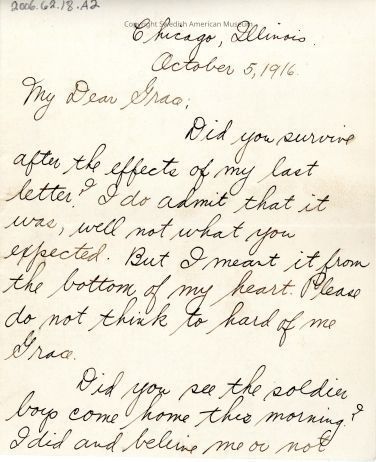 2006.62.18.A2
Copyright Swedish American Museum
Chicago, Illinois.
October 5, 1916.
My Dear Grace;
Did you survive
after the effects of my last
letter? I do admit that it
was, well not what you
expected. But I meant it from
the bottom of my heart. Please
do not think to hard of me
Grace.
Did you see the soldier
boys come home this morning?
I did and believe me or not